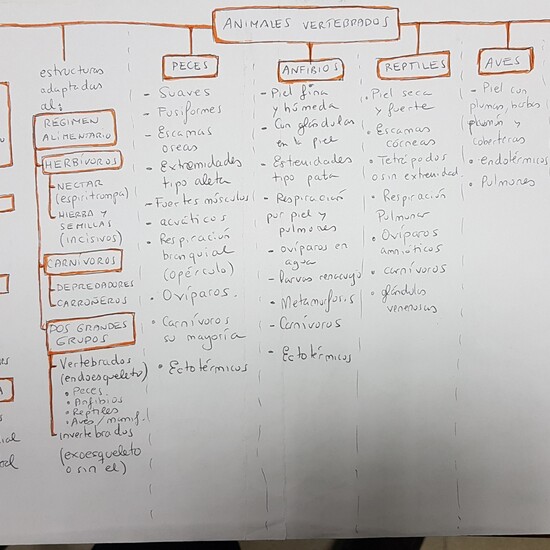 ANIMALES VERTEBRADOS
estructuras
adaptadas
al:
RÉGIMEN
ALIMENTARIO
HERBÍVOROS
- NECTAR
(espiritrompa)
- HIERBA Y
SEMILLAS
(incisivos)
CARNÍVOROS
- DEPREDADORES
- CARROÑEROS
DOS GRANDES
GRUPOS
- Vertebrados
(endoesqueleto)
• Peces
• Anfibios
• Reptiles
• Aves/mamíf.
- Invertebrados
(exoesqueleto
o sin el)
PECES
- Suaves
- Fusiformes
- Escamas
oseas
- Extremidades
tipo aleta
- Fuertes músculos
- acuáticos
- Respiración
branquial
(opérculo)
• Ovíparos.
• Carnívoros
su mayoría
• Ectotérmicos
ANFIBIOS
- Piel fina
y húmeda
- Con glándulas
en la piel
- Extremidades
tipo pata
- Respiración
por piel y
pulmones
- Ovíparos en
agua
- Larvas renacuajo
- Metamorfosis
- Carnívoros
- Ectotérmicos
REPTILES
• Piel seca
y fuerte
• Escamas
córneas
• Tetrápodos
o sin extremidad.
• Respiración
Pulmonar
• Ovíparos
amnióticos
• carnívoros
• glándulas
venenosas
AVES
- Piel con
plumas, barbas
plumón y
coberteras
• endotérmicos
• Pulmones